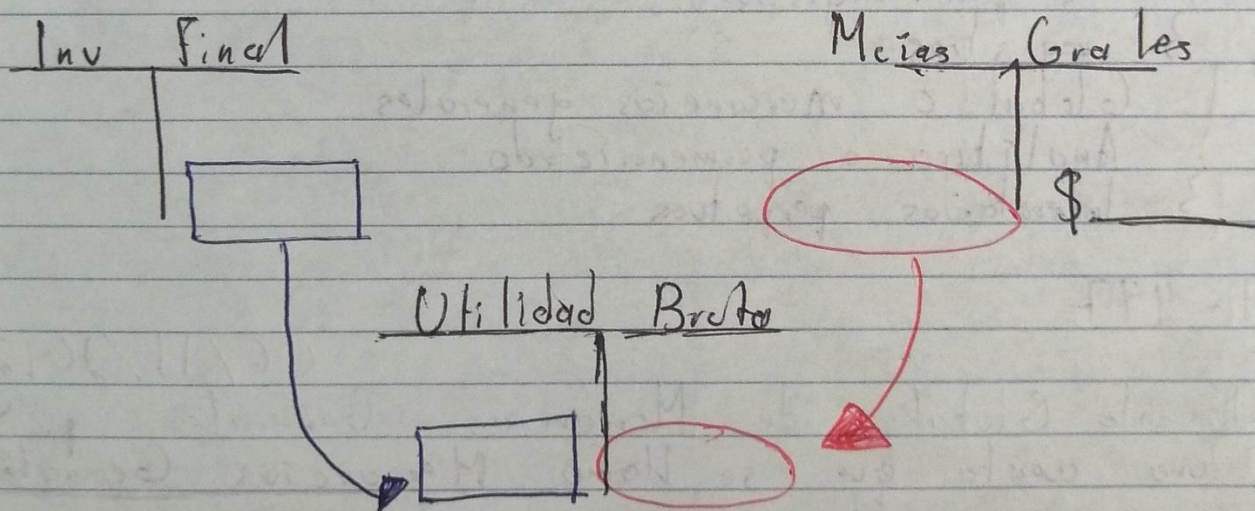 Inv Final
Mcías Grales
$
Utilidad Bruta